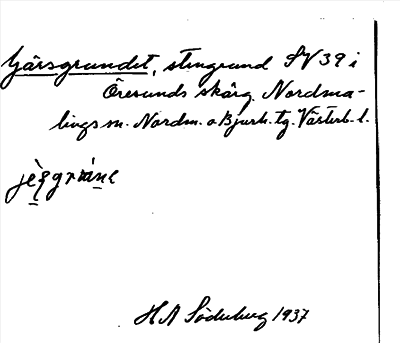 Gärsgrundet, stengrund SV 39 i
Öresunds skärg. Nordma-
lings sn. Nordm. o Bjurh. tg. Västerb. l.
HA Söderberg 1937